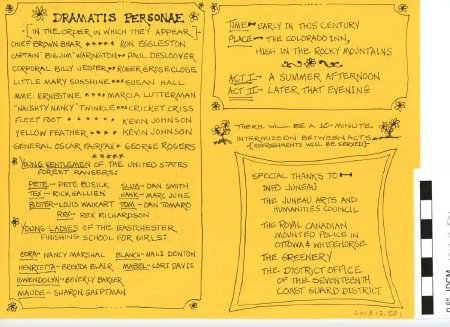 DRAMATIS PERSONAE
(IN THE ORDER IN WHICH THEY APPEAR)
CHIEF BROWN BEAR **** RON EGGLESTON
CAPTAIN "BIG JIM" WARINGTON ** PAUL DESLOOVER
CORPORAL BILLY JESTER ** ROGER GROSECLOSE
LITTLE MARY SUNSHINE *** SUSAN HALL
MME. ERNESTINE **** MARCIA LUTTERMAN
"NAUGHTY NANCY" TWINKLE ** CRICKET CRISS
FLEET FOOT ***** KEVIN JOHNSON
YELLOW FEATHER **** KEVIN JOHNSON
GENERAL OSCAR FAIRFAX * GEORGE ROGERS
*****
YOUNG GENTLEMEN OF THE UNITED STATES
FOREST RANGERS:
PETE — PETE BUSICK SLIM — DAN SMITH
TEX — RICK GALLIEN HANK — MARC JUNE
BUSTER — LOUIS WAIKART TOM — DAN TOMARO
REX — REX RICHARDSON
YOUNG LADIES OF THE EASTCHESTER
FINISHING SCHOOL FOR GIRLS:
CORA — NANCY MARSHAL BLANCH — HALI DENTON
HENRIETTA — BRENDA BLAIR MABEL — LORI DAVIS
GWENDOLYN — BEVERLY BARBER
MAUDE — SHARON GAIPTMAN
TIME — EARLY IN THIS CENTURY
PLACE — THE COLORADO INN,
HIGH IN THE ROCKY MOUNTAINS
ACT I — A SUMMER AFTERNOON
ACT II — LATER THAT EVENING
THERE WILL BE A 10-MINUTE
INTERMISSION BETWEEN ACTS
(REFRESHMENTS WILL BE SERVED)
SPECIAL THANKS TO
INFO JUNEAU
THE JUNEAU ARTS AND
HUMANITIES COUNCIL
THE ROYAL CANADIAN
MOUNTED POLICE IN
OTTOWA & WHITEHORSE
THE GREENERY
THE DISTRICT OFFICE
OF THE SEVENTEENTH
COAST GUARD DISTRICT
2013.12.501